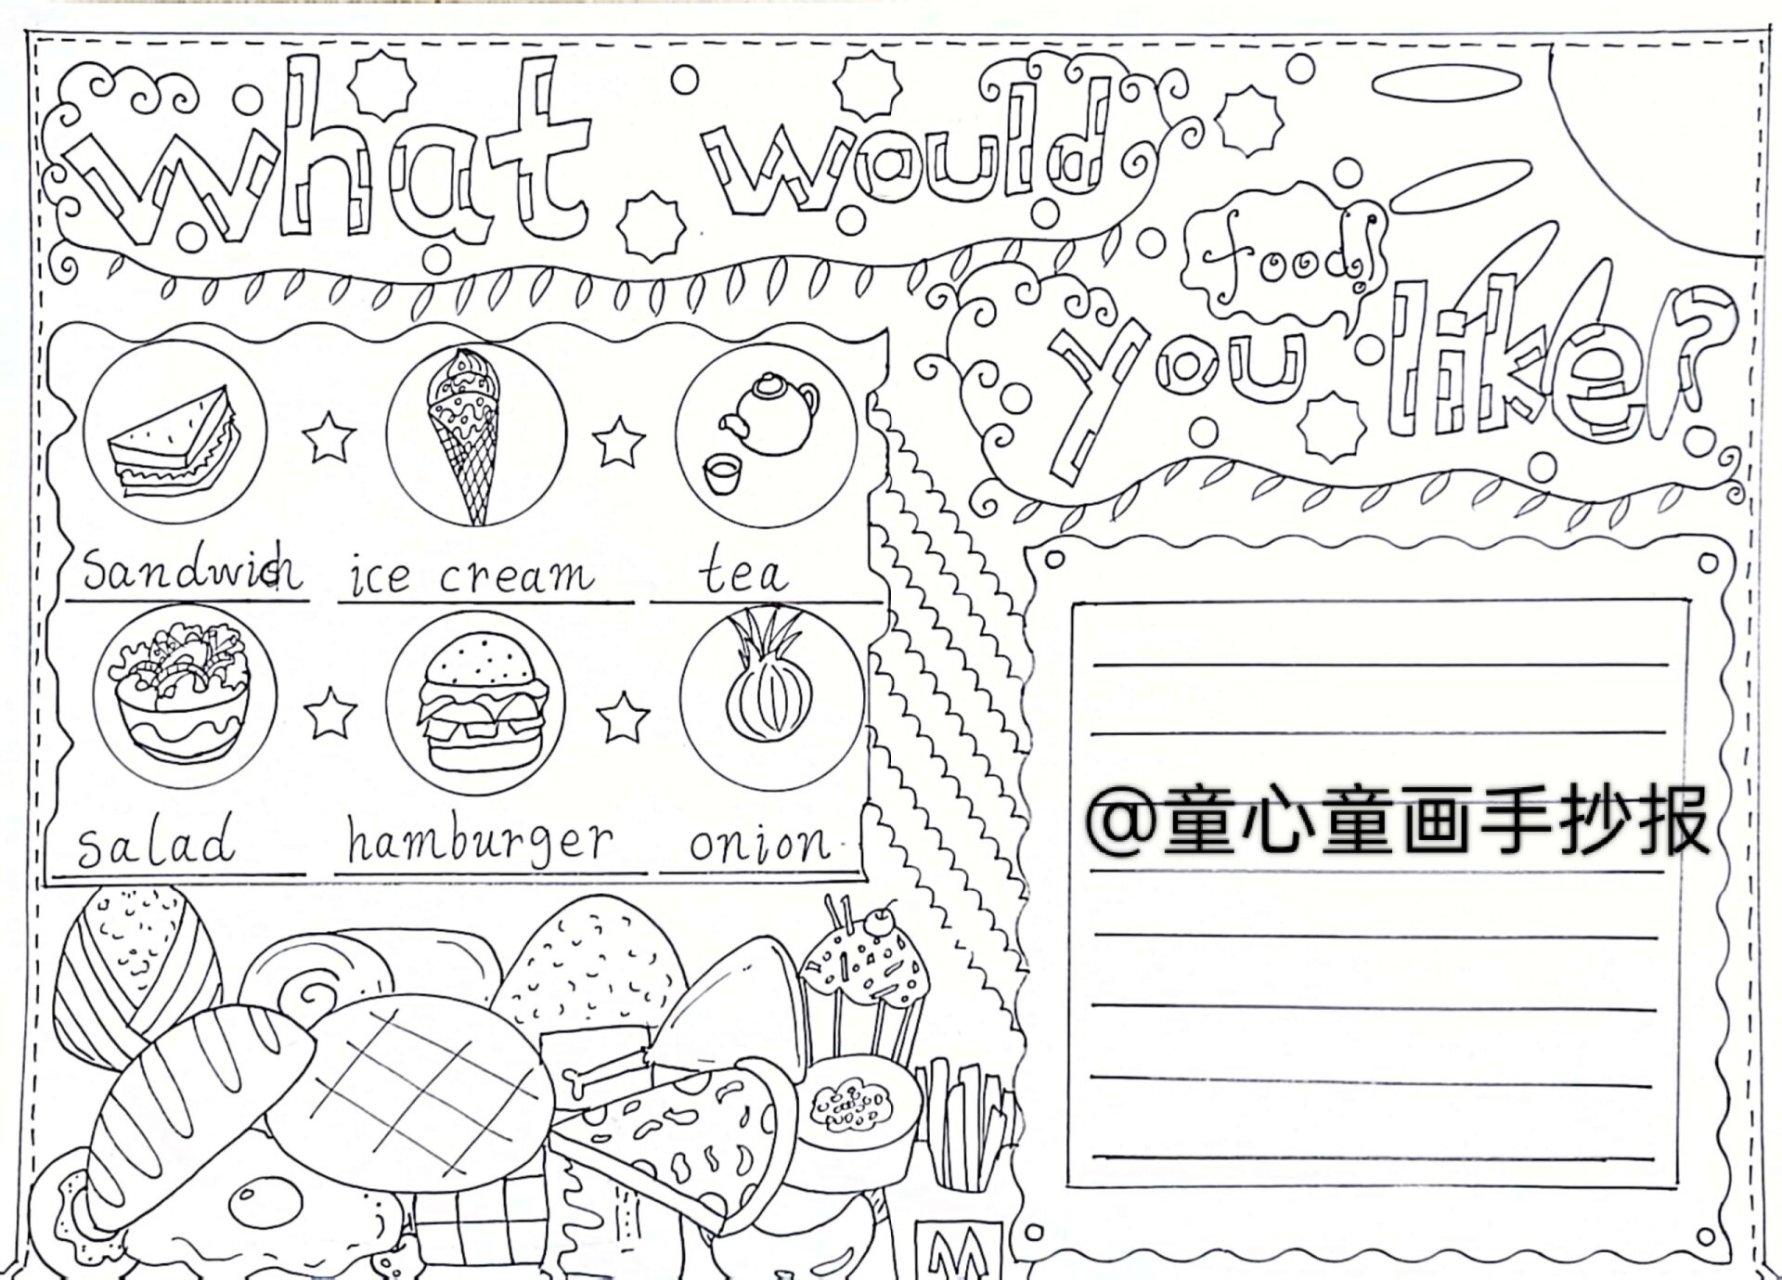 what would
food!
you like?
sandwich ice cream tea
salad hamburger onion
@童心童画手抄报
M